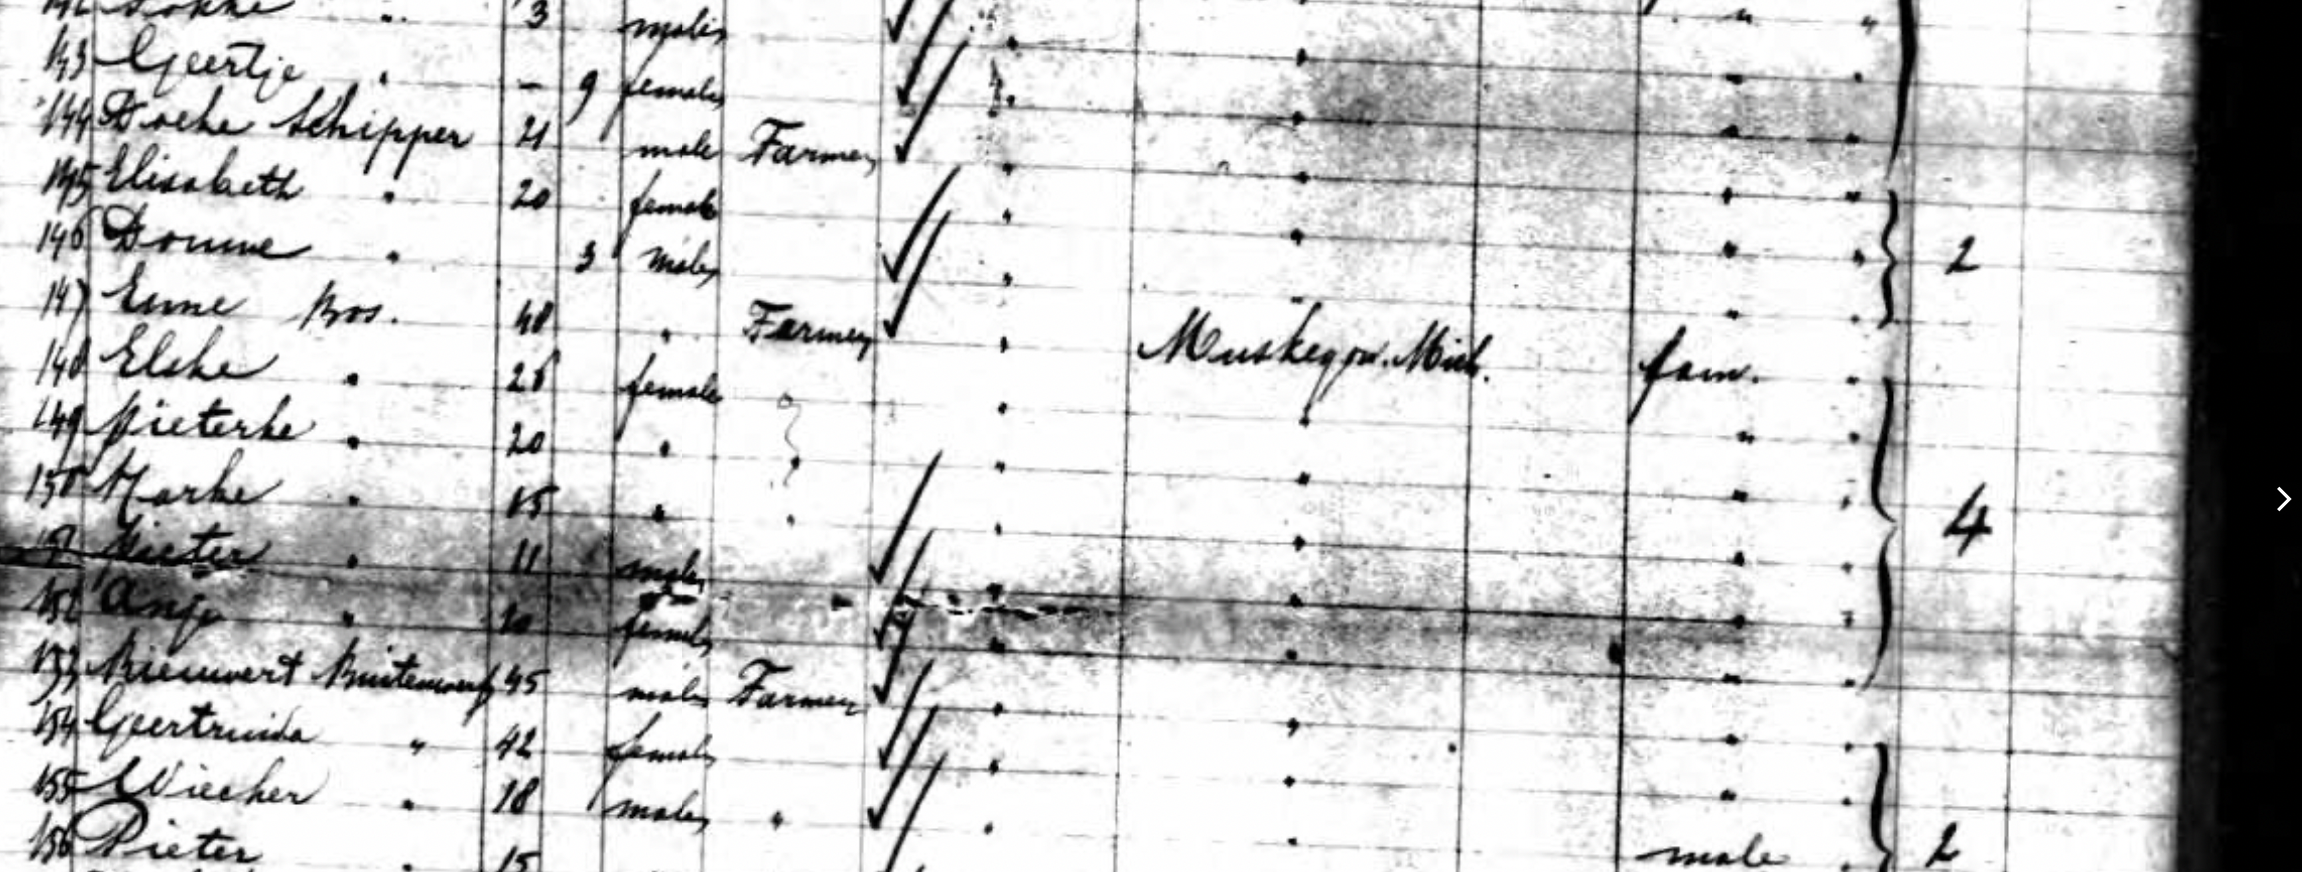 142 Fokke " 3 male
143 Geertje " – 9 female
144 Doeke Schipper 21 male Farmer
145 Elisabeth " 20 female 2
146 Douwe " 3 male
147 Enne Bos. 48 " Farmer Muskegon. Mich. fam. "
148 Elske " 26 female
149 Pieterke " 20 "
150 Harke " 15 " 4
151 Pieter " 11 male
152 Anje " 10 female
153 45 male Farmer
154 Geertruida " 42 female
155 Wiecher " 18 male "
156 Pieter " 15 male " 2